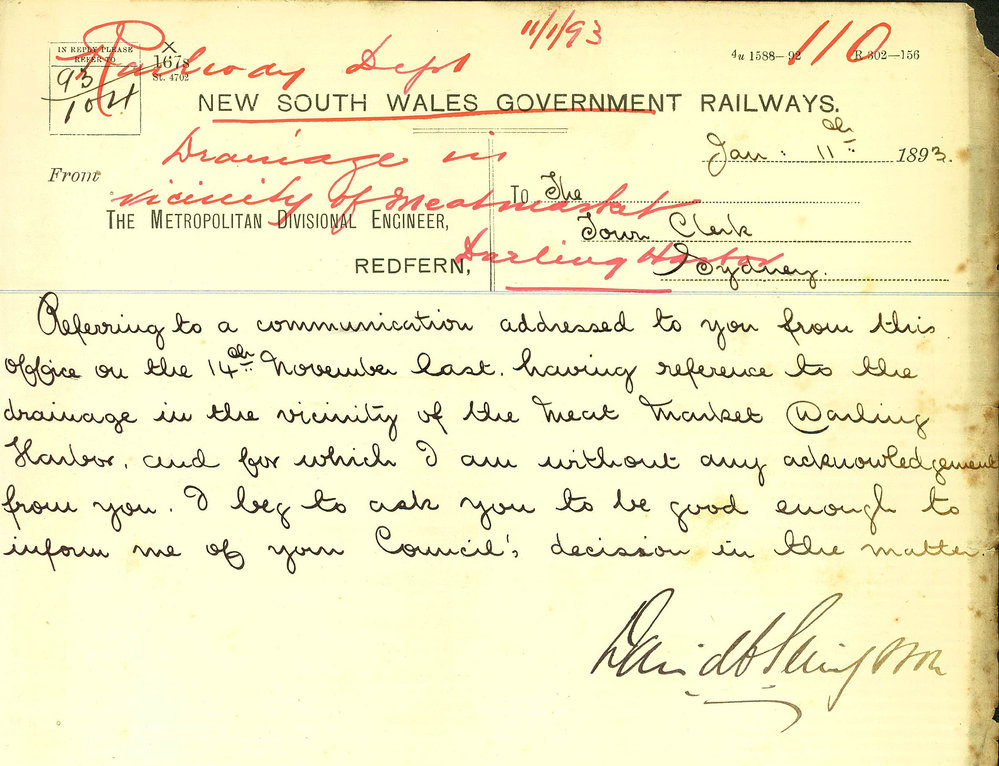 11/1/93
Railway Dept
110
IN REPLY PLEASE
REFER TO
93
104
X
167s
St. 4702
4u 1588—92
R 302—156
NEW SOUTH WALES GOVERNMENT RAILWAYS.
Drainage in
vicinity of Meatmarket
Darling Harbor
Jan: 11th 1893.
From
THE METROPOLITAN DIVISIONAL ENGINEER,
REDFERN,
To The
Town Clerk
Sydney.
Referring to a communication addressed to you from this
office on the 14th November last, having reference to the
drainage in the vicinity of the Meat Market Darling
Harbor, and for which I am without any acknowledgement
from you. I beg to ask you to be good enough to
inform me of your Council's decission in the matter.
David